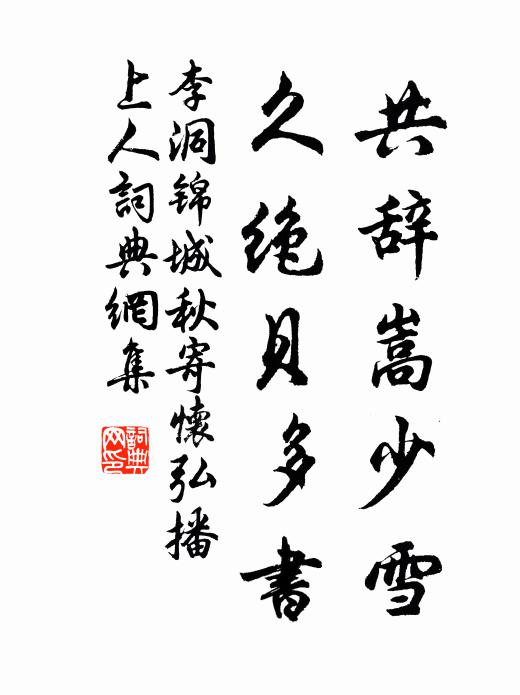 共辞嵩少雪
久绝贝多書
李洞锦城秋寄懷弘播
上人詞典網集
詞典
网印